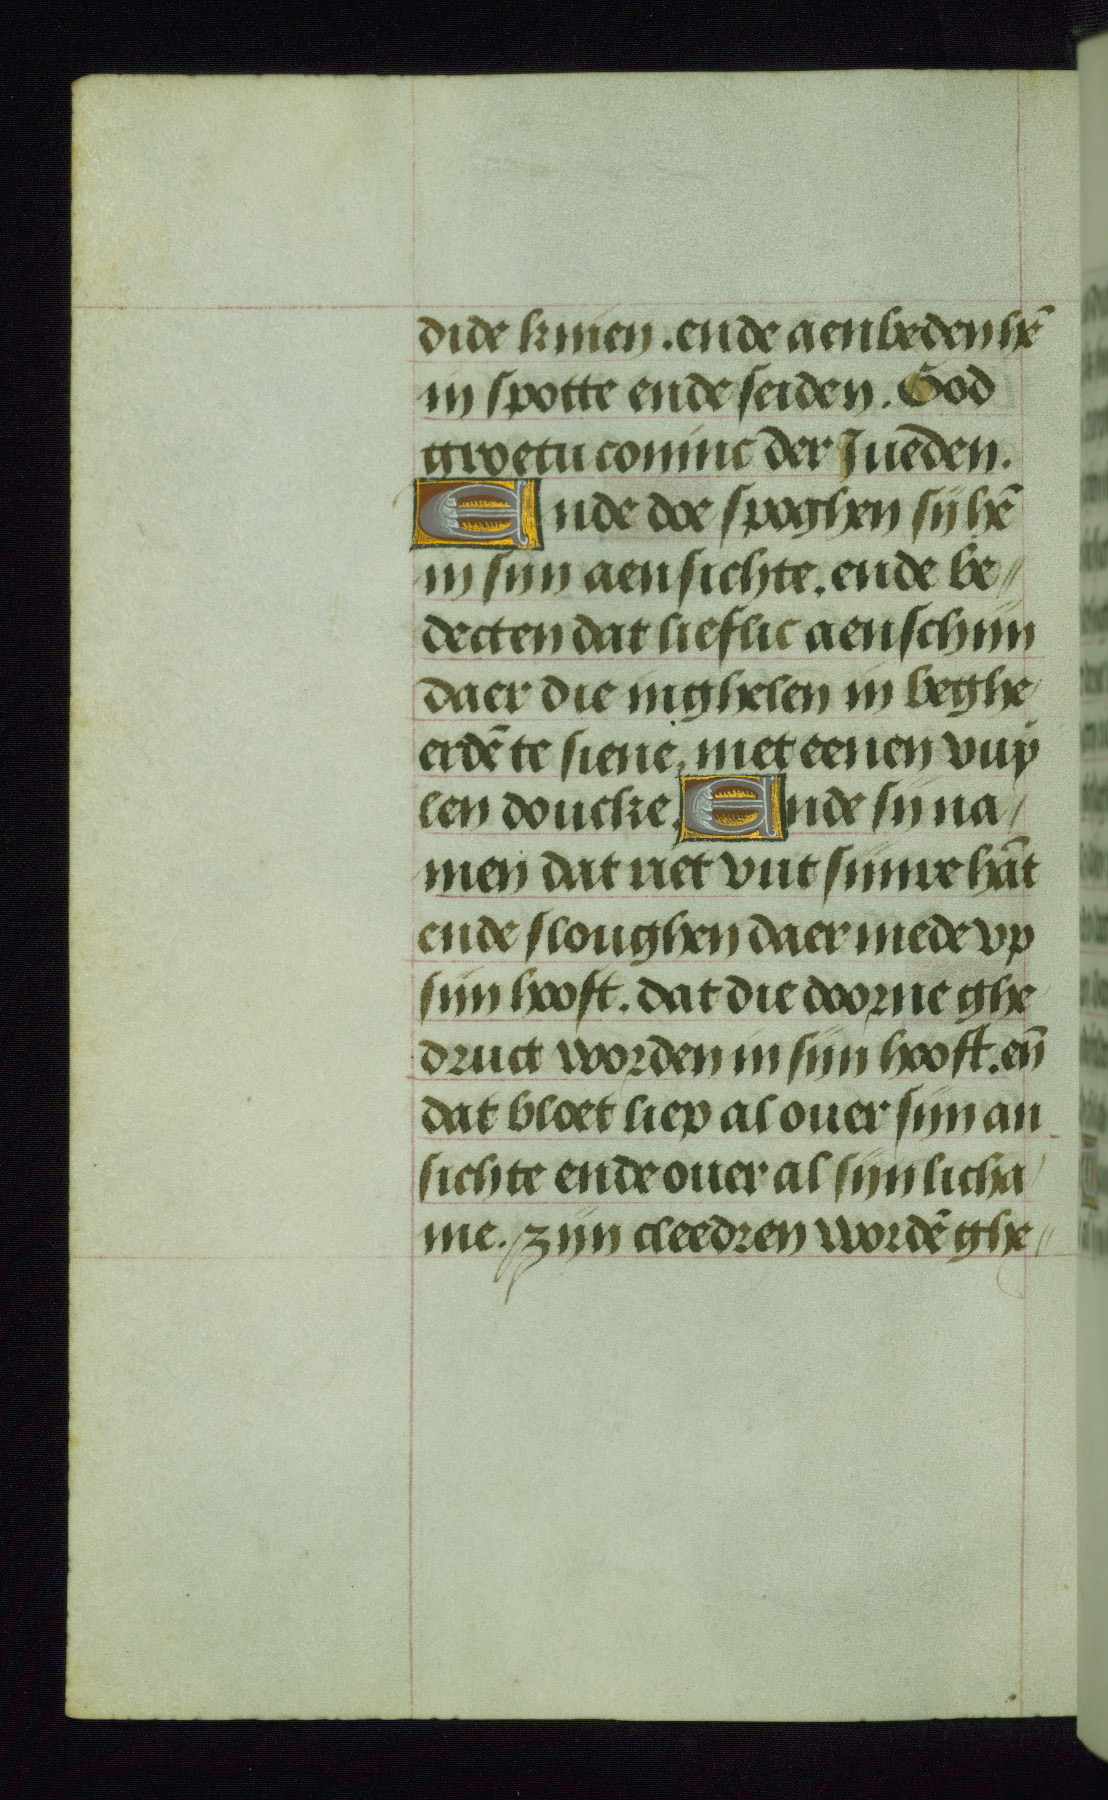 dide knien. ende aenbeden hē
in spotte ende seiden. God
groetu coninc der Jueden.
Ende doe spoghen sij hē
in sijn aensichte. ende be⸗
decten dat lieflic aenschijn
daer die inghelen in beghe
erdē te siene, met eenen vuÿ
len doucke. Ende sij na
men dat riet vut sijnre hāt
ende sloughen daer mede vp
sijn hooft. dat die doorne ghe
druct worden in sijn hooft. eñ
dat bloet liep al ouer sijn an
sichte ende ouer al sijn licha
me. zijn cleedren wordē ghe⸗